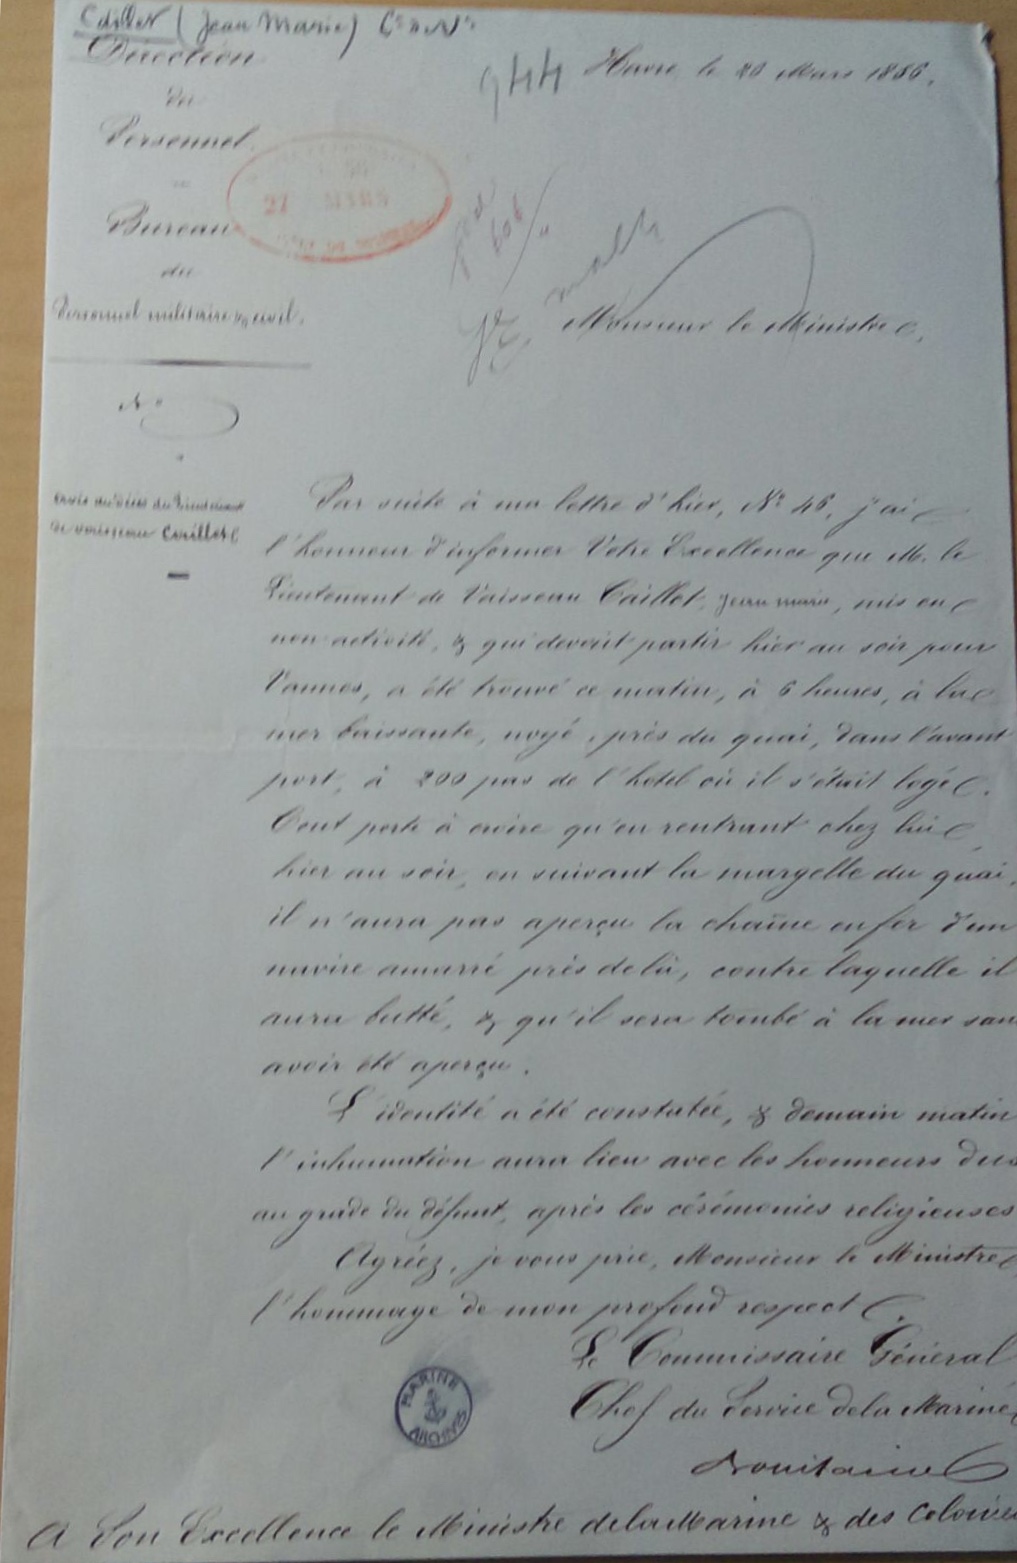 Caillet (Jean Marie)
Direction
du
Personnel.
Bureau
du
Personnel militaire & civil.
N°
Avis du décès du Lieutenant
de vaisseau Caillet
944
Havre, le 26 Mars 1866.
27 MARS
Monsieur le Ministre,
Par suite à ma lettre d'hier, N° 46, j'ai
l'honneur d'informer Votre Excellence que M. le
Lieutenant de Vaisseau Caillet, Jean Marie, mis en
non-activité, & qui devait partir hier au soir pour
Vannes, a été trouvé ce matin, à 6 heures, à la
mer baissante, noyé, près du quai, dans l'avant
port, à 200 pas de l'hotel où il s'était logé.
Tout porte à croire qu'en rentrant chez lui
hier au soir, en suivant la margelle du quai,
il n'aura pas aperçu la chaîne en fer d'un
navire amarré près de là, contre laquelle il
aura butté, & qu'il sera tombé à la mer san
avoir été aperçu.
L'identité a été constatée, & demain matin
l'inhumation aura lieu avec les honneurs dus
au grade du défunt, après les cérémonies religieuses
Agréez, je vous prie, Monsieur le Ministre
l'hommage de mon profond respect.
Le Commissaire Général
Chef du Service de la Marine
MARINE
ARCHIVES
A Son Excellence le Ministre de la Marine & des Colonies